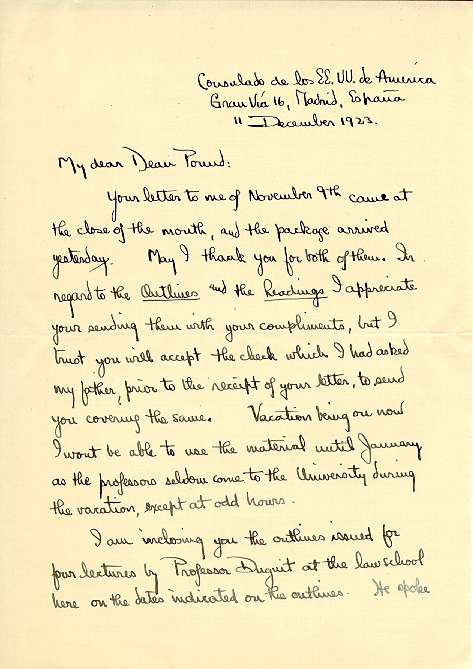 Consulado de los EE. UU. de América
Gran Vía 16, Madrid, España
11 December 1923.
My dear Dean Pound:
Your letter to me of November 9th came at
the close of the month, and the package arrived
yesterday. May I thank you for both of them. In
regard to the Outlines and the Readings I appreciate
your sending them with your compliments, but I
trust you will accept the check which I had asked
my father, prior to the receipt of your letter, to send
you covering the same. Vacation being on now
I wont be able to use the material until January
as the professors seldom come to the University during
the vacation, except at odd hours.
I am inclosing you the outlines issued for
four lectures by Professor Duguit at the law school
here on the dates indicated on the outlines. He spoke